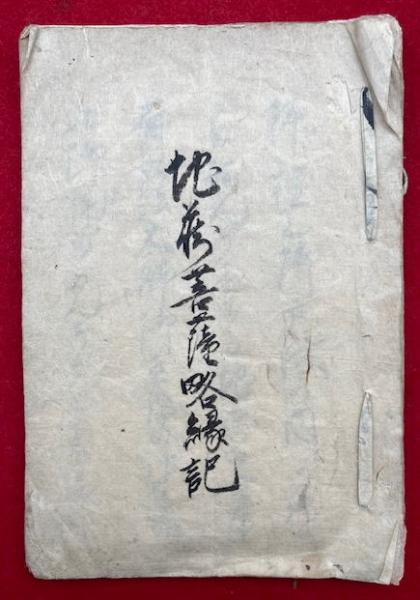 地蔵菩薩略縁記